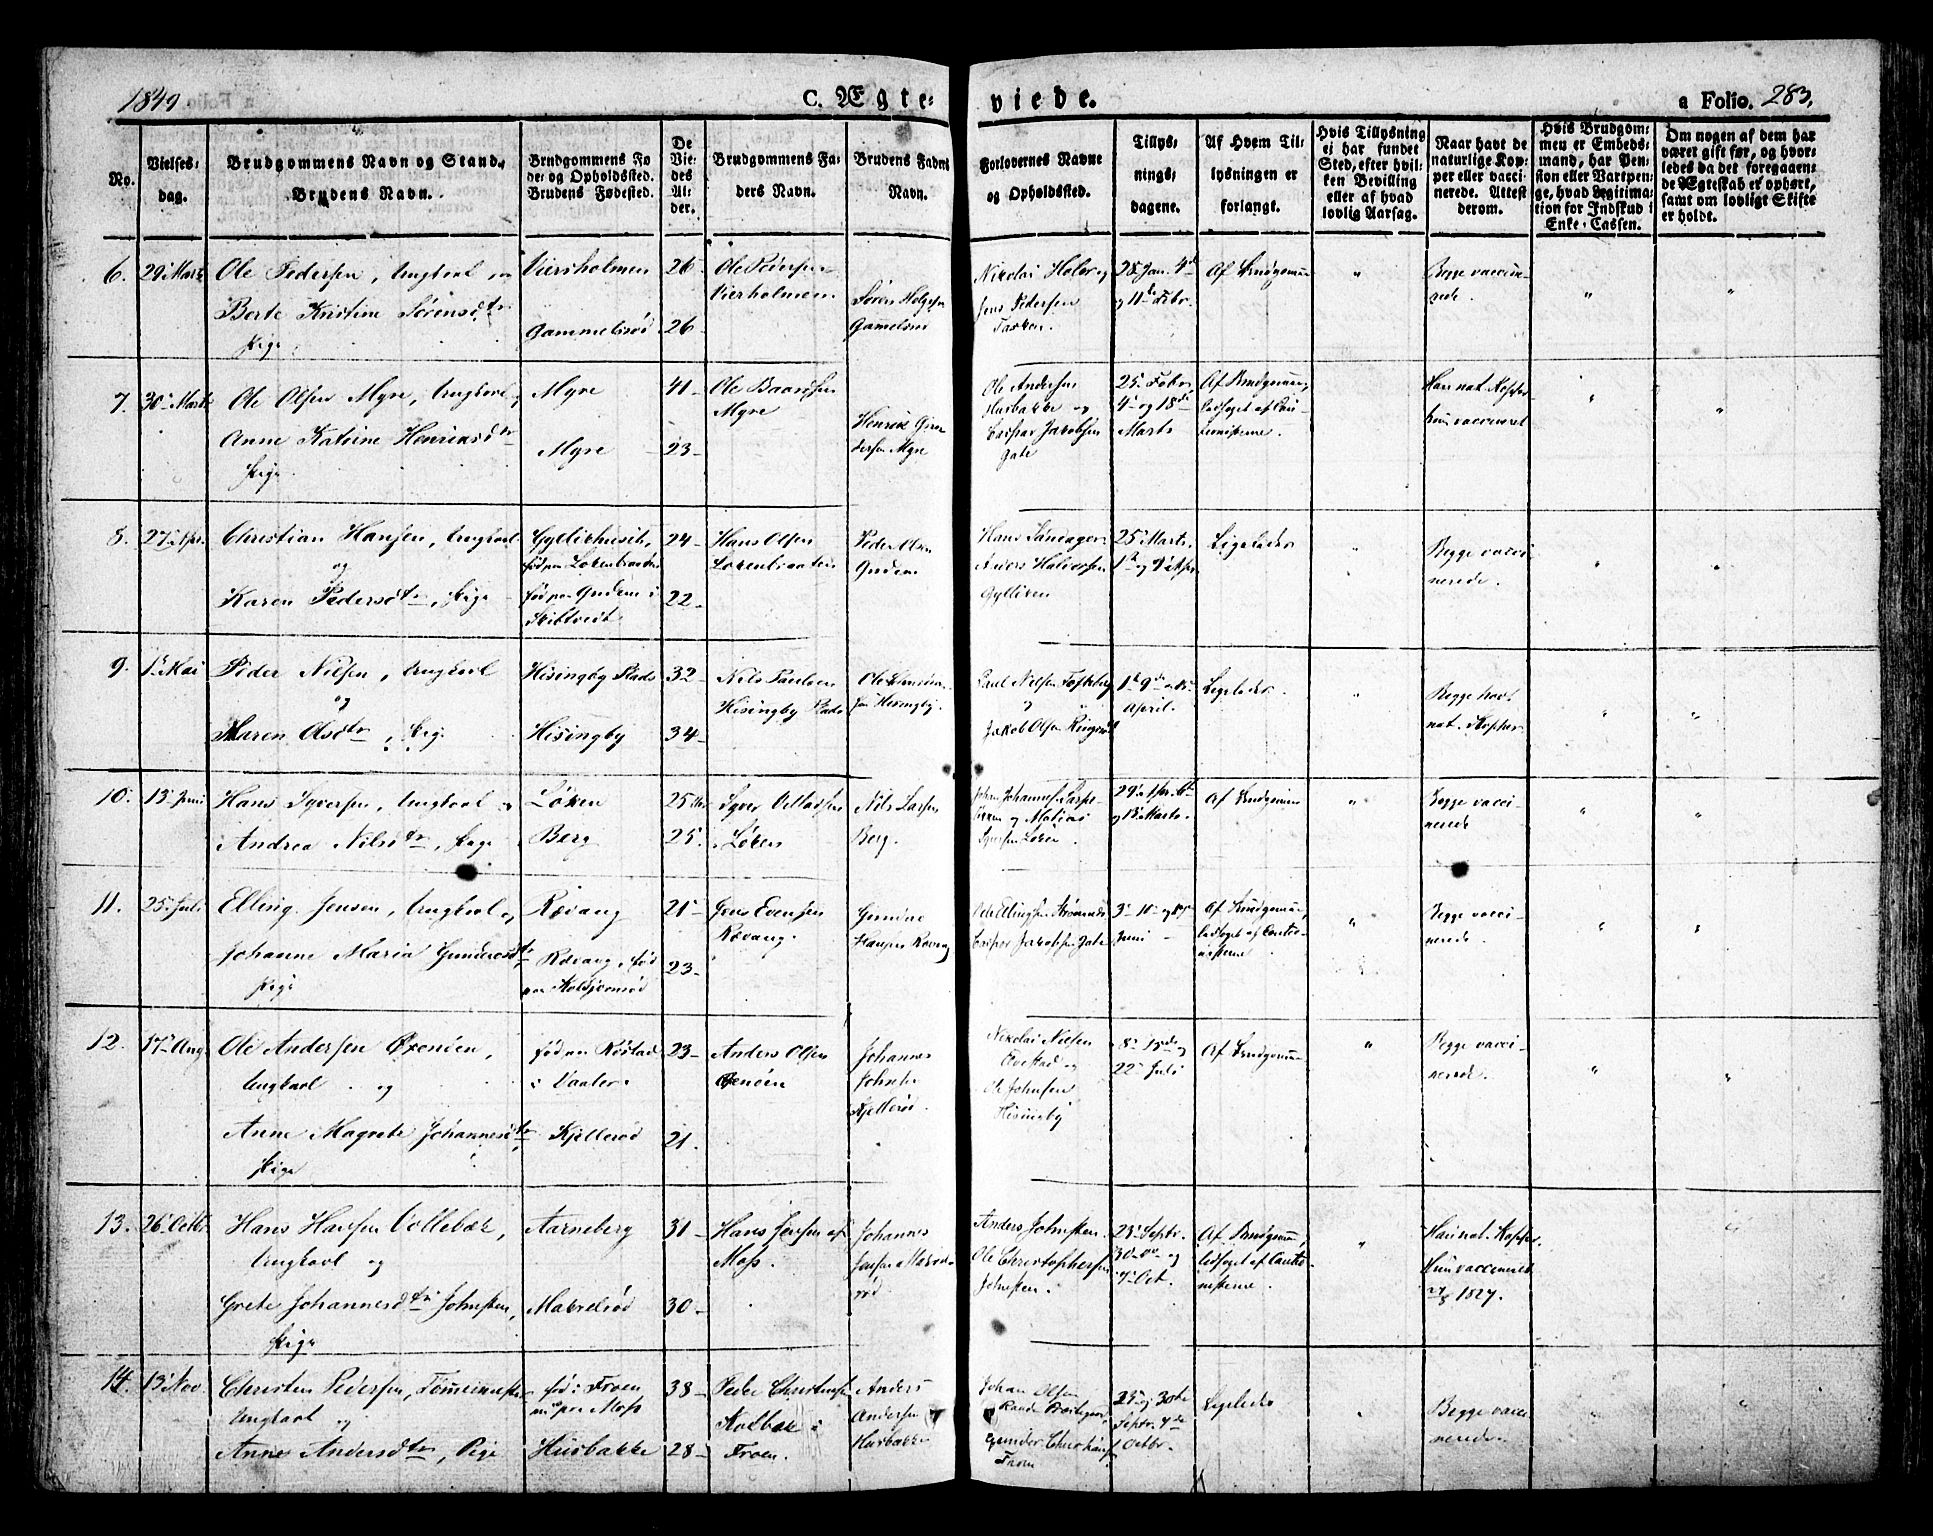 1849
C. Ægte-
viede.
a Folio. 283.
No.
Vielses-
dag.
Brudgommens Navn og Stand.
Brudens Navn.
Brudgommens Fø
de- og Opholdssted.
Brudens Fødested.
De
Vie-
des
Al-
der.
Brudgommens Fa-
ders Navn.
Brudens Faders
Navn.
Forlovernes Navne
og Opholdssted.
Tillys-
nings-
dagene.
Af Hvem Til-
lysningen er
forlangt.
Hvis Tillysning
ei har fundet
Sted, efter hvil-
ken Bevilling
eller af hvad
lovlig Aarsag.
Naar havt de
naturlige Kop-
per eller vacci-
nerede. Attest
derom.
Hvis Brudgom-
men er Embeds-
mand, har Pen-
sion eller Vartpen-
ge, hvad Legitima-
tion for Indskud i
Enke-Cassen.
Om nogen af dem har
været gift før, og hvor-
ledes da det foregaaen-
de Ægteskab er ophørt,
samt om lovligt Skifte
er holdt.
6. 29 Marts
Ole Pedersen, Ungkarl og
Berte Kristine Sørensdtr
Pige
Vierholmen
Gammelsrød
26
26
Ole Pedersen
Vierholmen
Søren Helgesen
Gamelsrød
Nikolai Holer og
Jens Pedersen
28 Jan. 4de
og 11te Febr.
Af Brudgommen
Begge vacci-
nerede.
7. 30 Marts
Ole Olsen Myre, Ungkarl
Anne Katrine Henriksdtr
Pige.
Myre
Myre
41
23
Ole Baardsen
Myre
Henrik Gun
dersen Myre
Ole Andersen
Husbakke og
Casper Jakobsen
Gate
25 Febr.
4de og 18de
Marts
Af Brudgommen,
ledsaget af Cau-
tionisterne.
Han nat. Kopper
hun vaccineret
8. 27 Apr.
Christian Hansen, Ungkarl
og
Karen Pedersdtr, Pige
født paa
født paa Gudem i
Skibtvedt
24
22
Hans Olsen
Lokenbraaten
Peder Olsen
Gudem
Hans Sandager
Anders Halvorsen
Gylliken
25 Marts,
1te og 9de Apr.
Ligeledes
Begge vacci
nerede.
9. 1te Mai
Peder Nilsen, Ungkarl
og
Maren Olsdtr, Pige
Hisingby Plads
Hisingby
32
34
Nils Paulsen
Hisingby Plads
Hisingby.
Paul Nilsen
og
Jakob Olsen
1te 9de og 15
April.
Ligeledes.
Begge havt
nat. Kopper
10. 13 Juni
Hans Syversen, Ungkarl og
Andrea Nilsdtr, Pige
Løken
Berg
25
25
Syver
Løken
Nils Larsen
Berg.
Johan Johannesen
og Matias
Syversen Løken
29 Apr. 6te
og 13 Marts.
Af Brudgommen
Begge vacci-
nerede
11. 25 Juli
Elling Jensen, Ungkarl og
Johanne Maria Gundersdtr
Pige
Rævang
Rævang, født
paa
25
23
Jens Evensen
Rævang.
Gunder
Hansen Rævang
Ole Ellingsen
Casper Jakobsen Gate
3 10 og 17
Juni
Af Brudgommen,
ledsaget af Cautio-
nisterne
Begge vacci-
nerede.
12. 17 Aug.
Ole Andersen Oxenøen,
Ungkarl og
Anne Magrete Johannesdtr
Pige
født paa Røstad
i Vaaler
Kjellerød
23
21.
Anders Olsen
Oxenøen
Johannes
Johnsen
Kjellerød.
Nikolai Nielsen
og
Ole Johnsen
Hisingby
8 15de og
22 Juli
Af Brudgommen
Begge vacci-
nerede.
13. 26 Octbr
Hans Hansen Vollebæk,
Ungkarl og
Grete Johannesdtr Johnsten,
Pige
Aarneberg
Makrelrød
31
30
Hans Jensen af
Moss.
Johannes
Jensen Makrel-
rød
Anders Johnsten.
Ole Christophersen
Johnsten.
23 Septr.
30 og
7 Oct.
Af Brudgommen,
ledsaget af Cautio-
nisterne
Han nat. Kopper.
Hun vaccineret
1827.
14. 13 Nov
Christen Pedersen, Tømmermester
Ungkarl og
Anne Andersdtr, Pige
født i Froen
paa Moss
Husbakke
38
28
Peder Christensen
Kolbek i
Froen.
Anders
Andersen
Husbakke
Johan Olsen
Gunder Christiansen
Froen
23 og 30te
Septr. 7de
Octbr.
Ligeledes
Begge vacci
nerede.